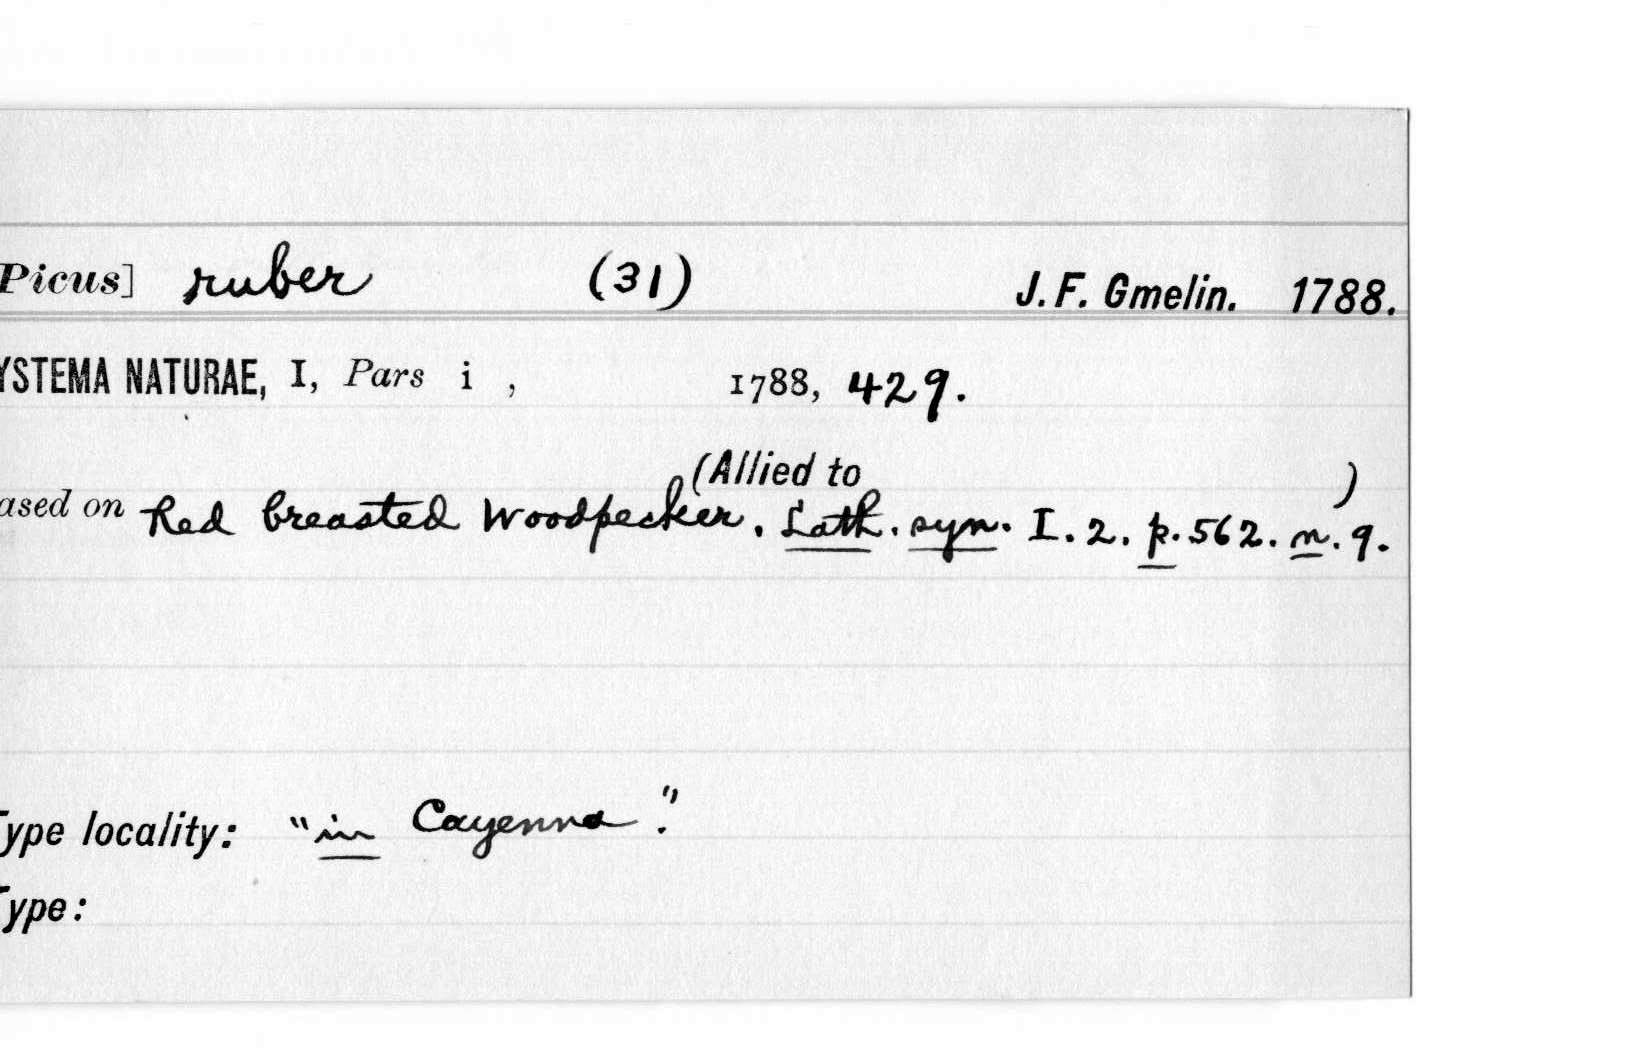 Picus] ruber (31) J. F. Gmelin. 1788.
YSTEMA NATURAE, I, Pars i , 1788, 429.
(Allied to )
ased on Red breasted Woodpecker. Lath. syn. I. 2. p. 562. n. 9.
Type locality: "in Cayenna".
Type: